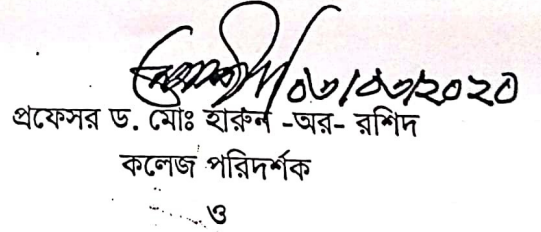 ০৩/০৩/২০২০
প্রফেসর ড. মোঃ হারুন -অর- রশিদ
কলেজ পরিদর্শক
ও